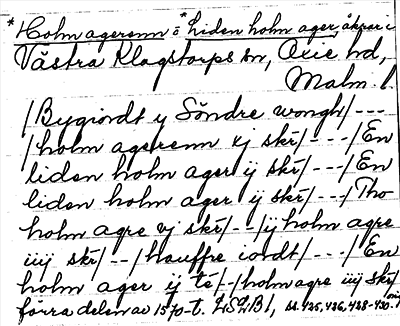 *Holm agerenn o *Liden holm ager, åkrar i
Västra Klagstorps sn, Oxie hd,
Malm. l.
/Bygiordt y Söndre wongh/---
/holm agerenn xj skr/---/En
liden holm ager ij skr/---/En
liden holm ager ij skr/---/Tho
holm agre vj skr/--/ij holm agre
iiij skr/--/hauffre iordt/---/En
holm ager ij té/--/holm agre iiij skr/
förra delen av 1570-t. LSLB1, bl. 425, 426, 428-430